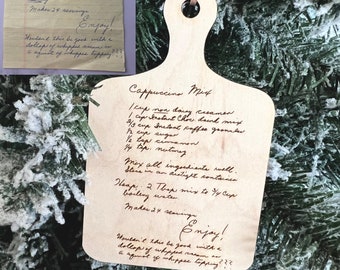 Makes 24 servings
Enjoy!
Wouldn't this be good with a
dollop of whipped cream or
a squirt of whipped topping???
Cappuccino Mix
1 cup non dairy creamer
1 cup Instant Choc drink mix
Instant Coffee granules
cup sugar
cup cinnamon
cup nutmeg
Mix all ingredients well.
Store in an airtight container
2 Tbsp mix to 3/4 Cup
boiling water
Makes 24 servings
Enjoy!
Wouldn't this be good with a
dollop of whipped cream or
a squirt of whipped topping???